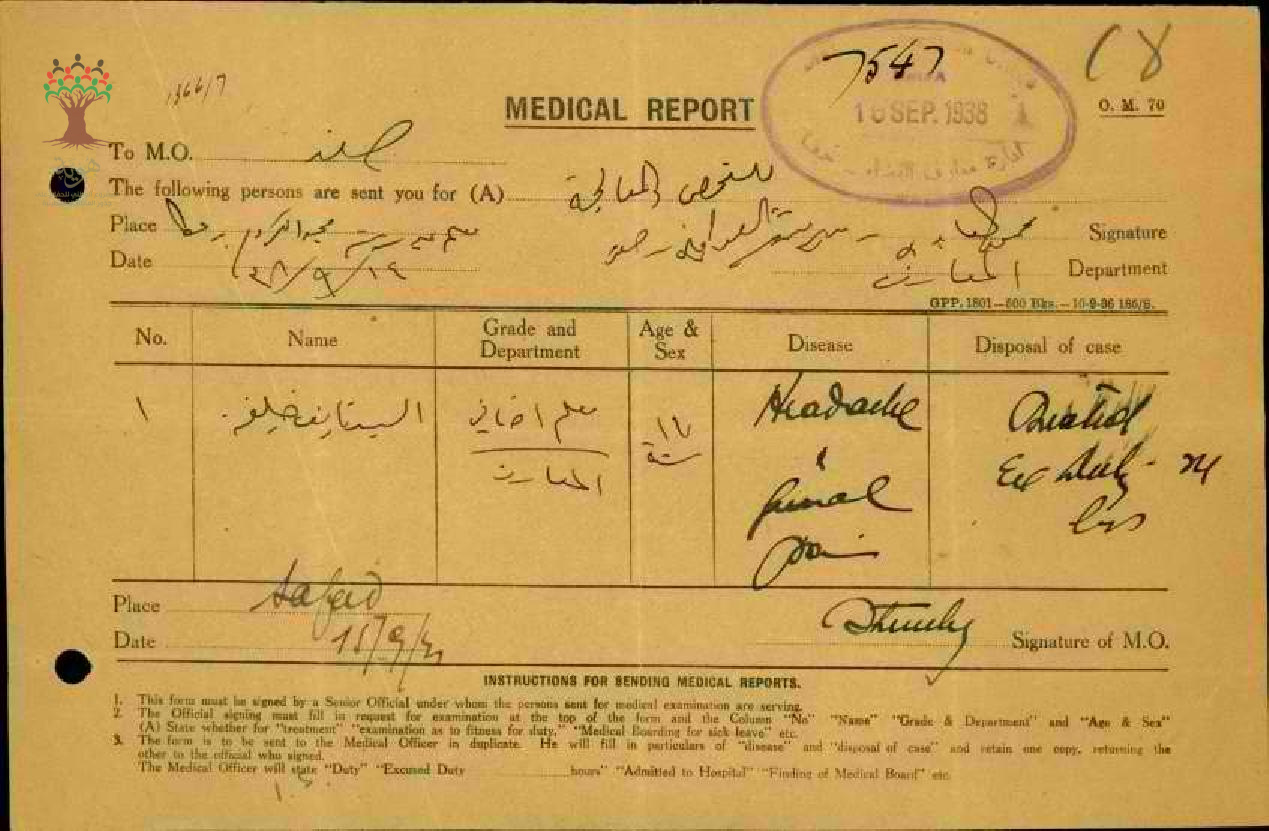 7547
18
1366/7
16 SEP. 1938
MEDICAL REPORT
O. M. 70
To M.O. صفد
The following persons are sent you for (A) للفحص والمعالجة
Place
Signature
Date ١٤/٩/٣٨
المعارف Department
GPP. 1801—600 Bks.—10-9-36 186/S.
No. Name Grade and Department Age & Sex Disease Disposal of case
١ السيد نايف خليفه معلم اضافي سنة Headache Treated
المعارف & General Pain Ex Duty 24 hrs
Place Safad
Date 15/9/
Signature of M.O.
INSTRUCTIONS FOR SENDING MEDICAL REPORTS.
1. This form must be signed by a Senior Official under whom the persons sent for medical examination are serving.
2. The Official signing must fill in request for examination at the top of the form and the Column "No" "Name" "Grade & Department" and "Age & Sex"
(A) State whether for "treatment" "examination as to fitness for duty," "Medical Boarding for sick leave" etc.
3. The form is to be sent to the Medical Officer in duplicate. He will fill in particulars of "disease" and "disposal of case" and retain one copy, returning the
other to the official who signed.
The Medical Officer will state "Duty" "Excused Duty ............hours" "Admitted to Hospital" "Finding of Medical Board" etc.